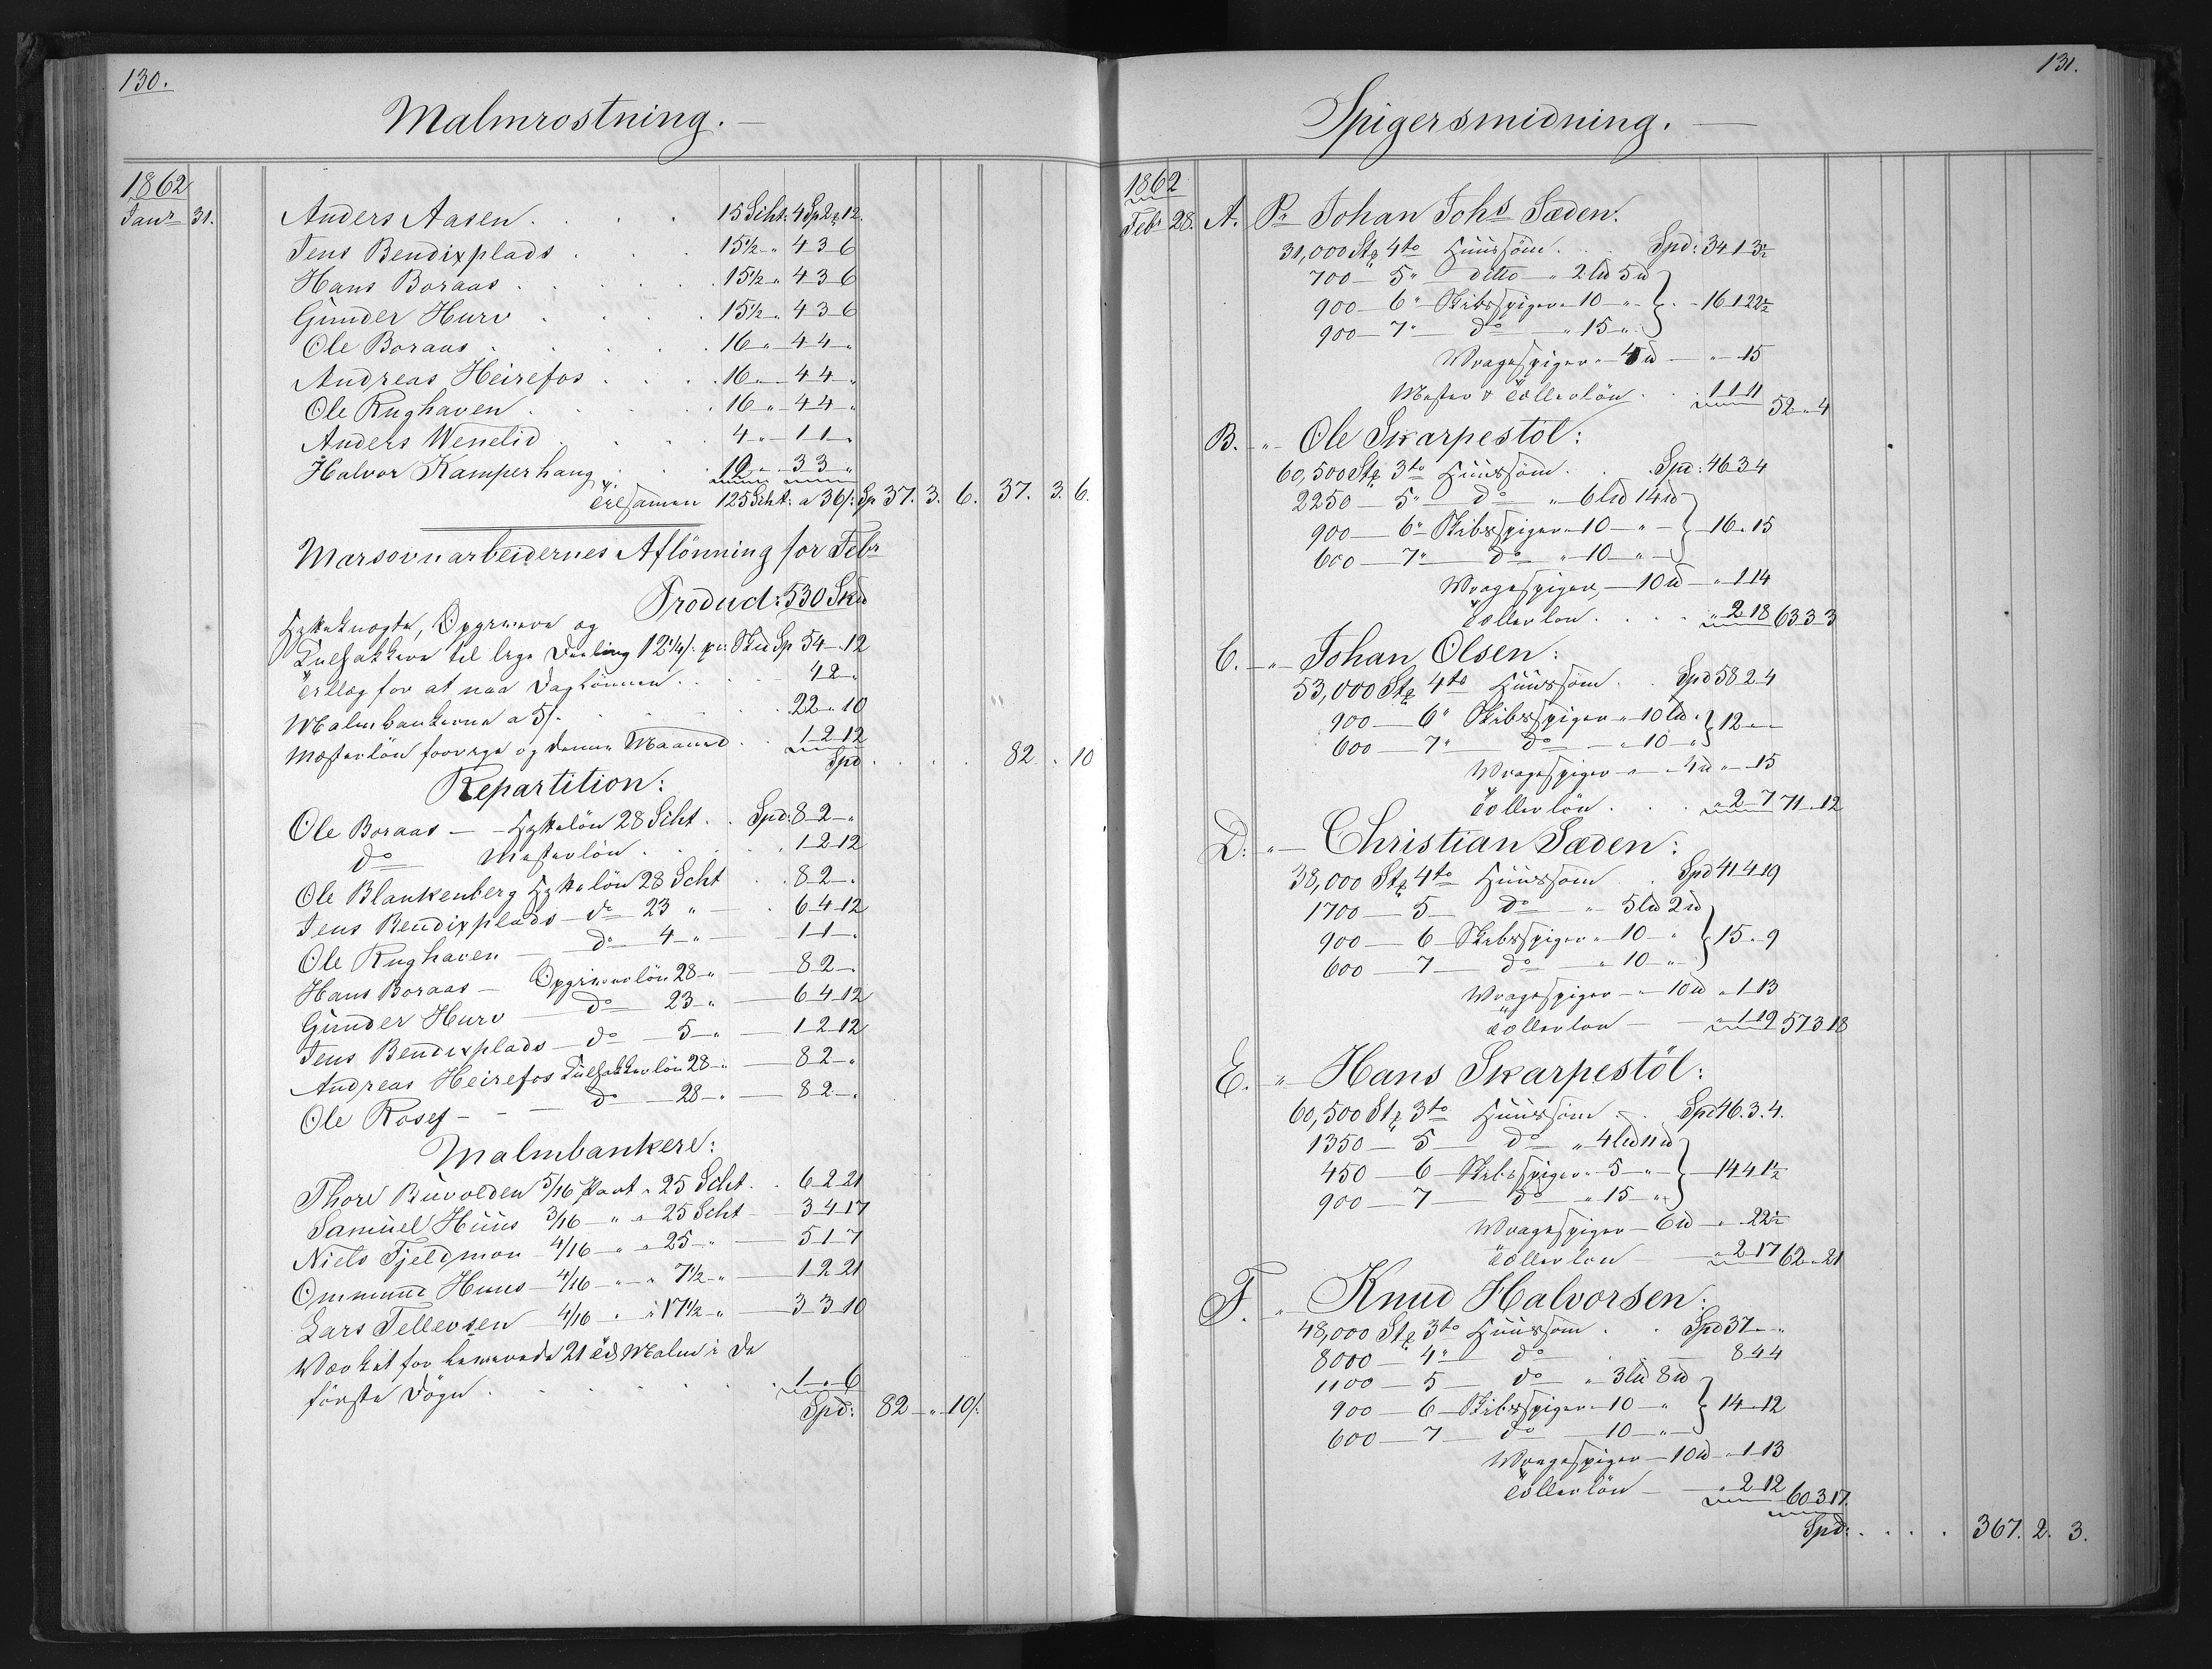 130.
Malmrostning. —
1862
Janr 31. Anders Aasen . . . . 15 Scht: 4 Sp 2 " 12.
Jens Bendixplads . . . 15½ " 4 3 6
Hans Boraas . . . . . 15½ " 4 3 6
Gunder Hurv . . . . 15½ " 4 3 6
Ole Boraas . . . . . 16 " 4 4 "
Andreas Heirefos . . . . 16 " 4 4 "
Ole Rughaven . . . . 16 " 4 4 "
Anders Wenelid . . . . 4 " 1 1 "
Halvor Kamperhaug . . . 12 " 3 3 "
Tilsamen 125 Scht: a 36/: Sp 37. 3. 6. 37. 3. 6.
Marsovnarbeidernes Aflönning for Febr
Product: 530 Skd
Hytteknegte, Opgivere og
Kulsækkere til lige Deeling 12¼/: pr: Skd Sp 54 " 12
Tillæg for at naa Daglönnen . . 4 2 "
Malmbankerne a 5/: . . . . . 22 " 10
Mesterlön forrige og denne Maaned . . 1 2 12
Spd . . . . 82 " 10
Repartition:
Ole Boraas — Hyttelön 28 Scht . . Spd: 8 2 "
do Mesterlön . . . . 1 2 12
Ole Blankenberg Hyttelön 28 Scht . . 8 2 "
Jens Bendixplads — do 23 " — . 6 4 12
Ole Rughaven — do 4 " — 1 1 "
Hans Boraas — Opgiverlön 28 " — 8 2 "
Gunder Hurv — do 23 " — 6 4 12
Jens Bendixplads — do 5 " — 1 2 12
Andreas Heirefos Kulsækkerlön 28 " — 8 2 "
Ole Rosef — — do 28 " — 8 2 "
Malmbankere:
Thore Buvolden 5/16 Part " 25 Scht . . 6 2 21
Samuel Huus 3/16 " " 25 Scht — 3 4 17
Niels Fjeldmon 4/16 " " 25 " — 5 1 7
Ommund Huus 4/16 " " 7½ " — 1 2 21
Lars Tellevsen 4/16 " " 17½ " — 3 3 10
Værket for 21 Malm i de
første Døgn . . . . . . 1 " 6
Spd: 82 " 10/:
131.
Spigersmidning. —
1862
Febr 28. A. Pr Johan Johs Sæden.
31,000 Stk 4to Huussöm . . Spd: 34 1 3½
700 — 5" ditto " 2 Ld 5 ℔
900 — 6" Skibsspiger " 10 " } " 16 1 22½
900 — 7" do " 15 "
Vragespiger " 4 ℔ — " — 15
Mester & Tællerlön . . 1 1 11 52 " 4
B. " — Ole Skarpestöl:
60,500 Stk 3to Huussöm . . Spd: 46 3 4
2250 — 5" do " 6 Ld 14 ℔
900 — 6" Skibsspiger " 10 " } 16 " 15
600 — 7" do " 10 "
Vragespiger — 10 ℔ — " 1 14
Tællerlön . . . . " 2 18 63 3 3
C. — " — Johan Olsen:
53,000 Stk 4to Huussöm . . Spd 58 2 4
900 — 6" Skibsspiger " 10 Ld } 12 " —
600 — 7" do " 10 "
Vragespiger — " — 4 ℔ " — 15
Tællerlön . . . " 2 7 71 " 12
D: " — Christian Sæden:
38,000 Stk 4to Huussöm . Spd 41 4 19
1700 — 5 — do " 5 Ld 2 ℔
900 — 6 — Skibsspiger " 10 " } 15 " 9
600 — 7 — do " 10 "
Vragespiger — " — 10 ℔ " 1 13
Tællerlön — — " 1 19 57 3 18
E. " — Hans Skarpestöl:
60,500 Stk 3to Huussöm . . Spd 46. 3. 4.
1350 — 5 — do " 4 Ld 11 ℔
450 — 6 — Skibsspiger " 5 " } — 14 4 1½
900 — 7 — do " 15 "
Vragespiger — 6 ℔ — " 22½
Tællerlön — " 2 17 62 " 21
F. " — Knud Halvorsen:
48,000 Stk 3to Huussöm . . Spd 37 " "
8000 — 4" do . . — 8 4 4
1100 — 5 — do " 3 Ld 8 ℔
900 — 6 — Skibsspiger " 10 " } 14 " 12
600 — 7 — do — 10 "
Vragespiger — 10 ℔ " 1 13
Tællerlön — " 2 12 60 3 17.
Spd: . . . . 367. 2. 3.